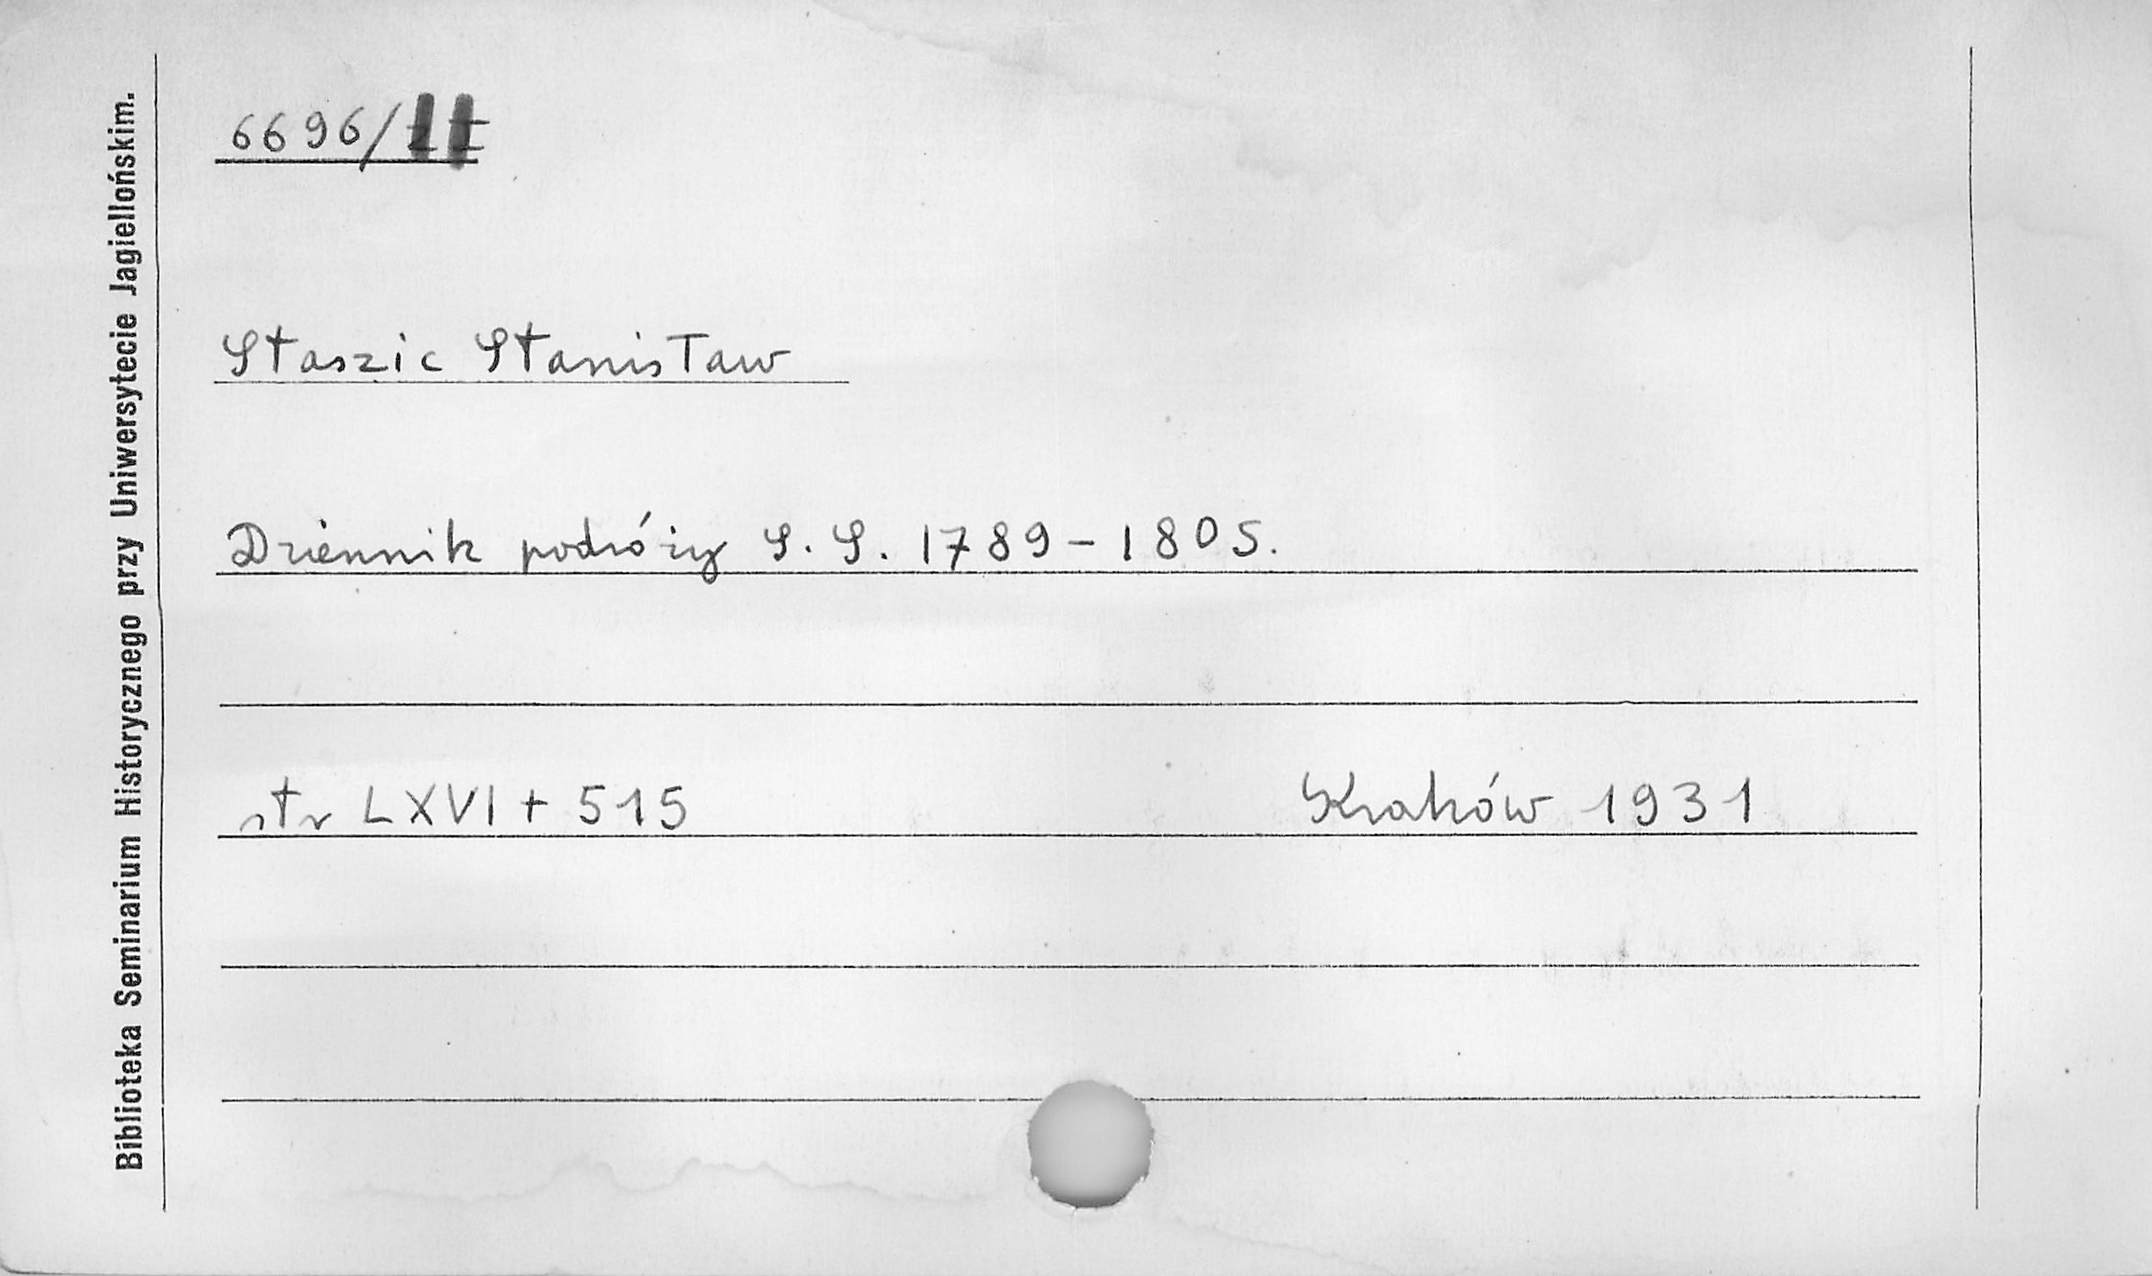 Biblioteka Seminarium Historycznego przy Uniwersytecie Jagiellońskim.
6696/II
Staszic Stanisław
Dziennik podróży S. S. 1789-1805.
str LXVI + 515
Kraków 1931